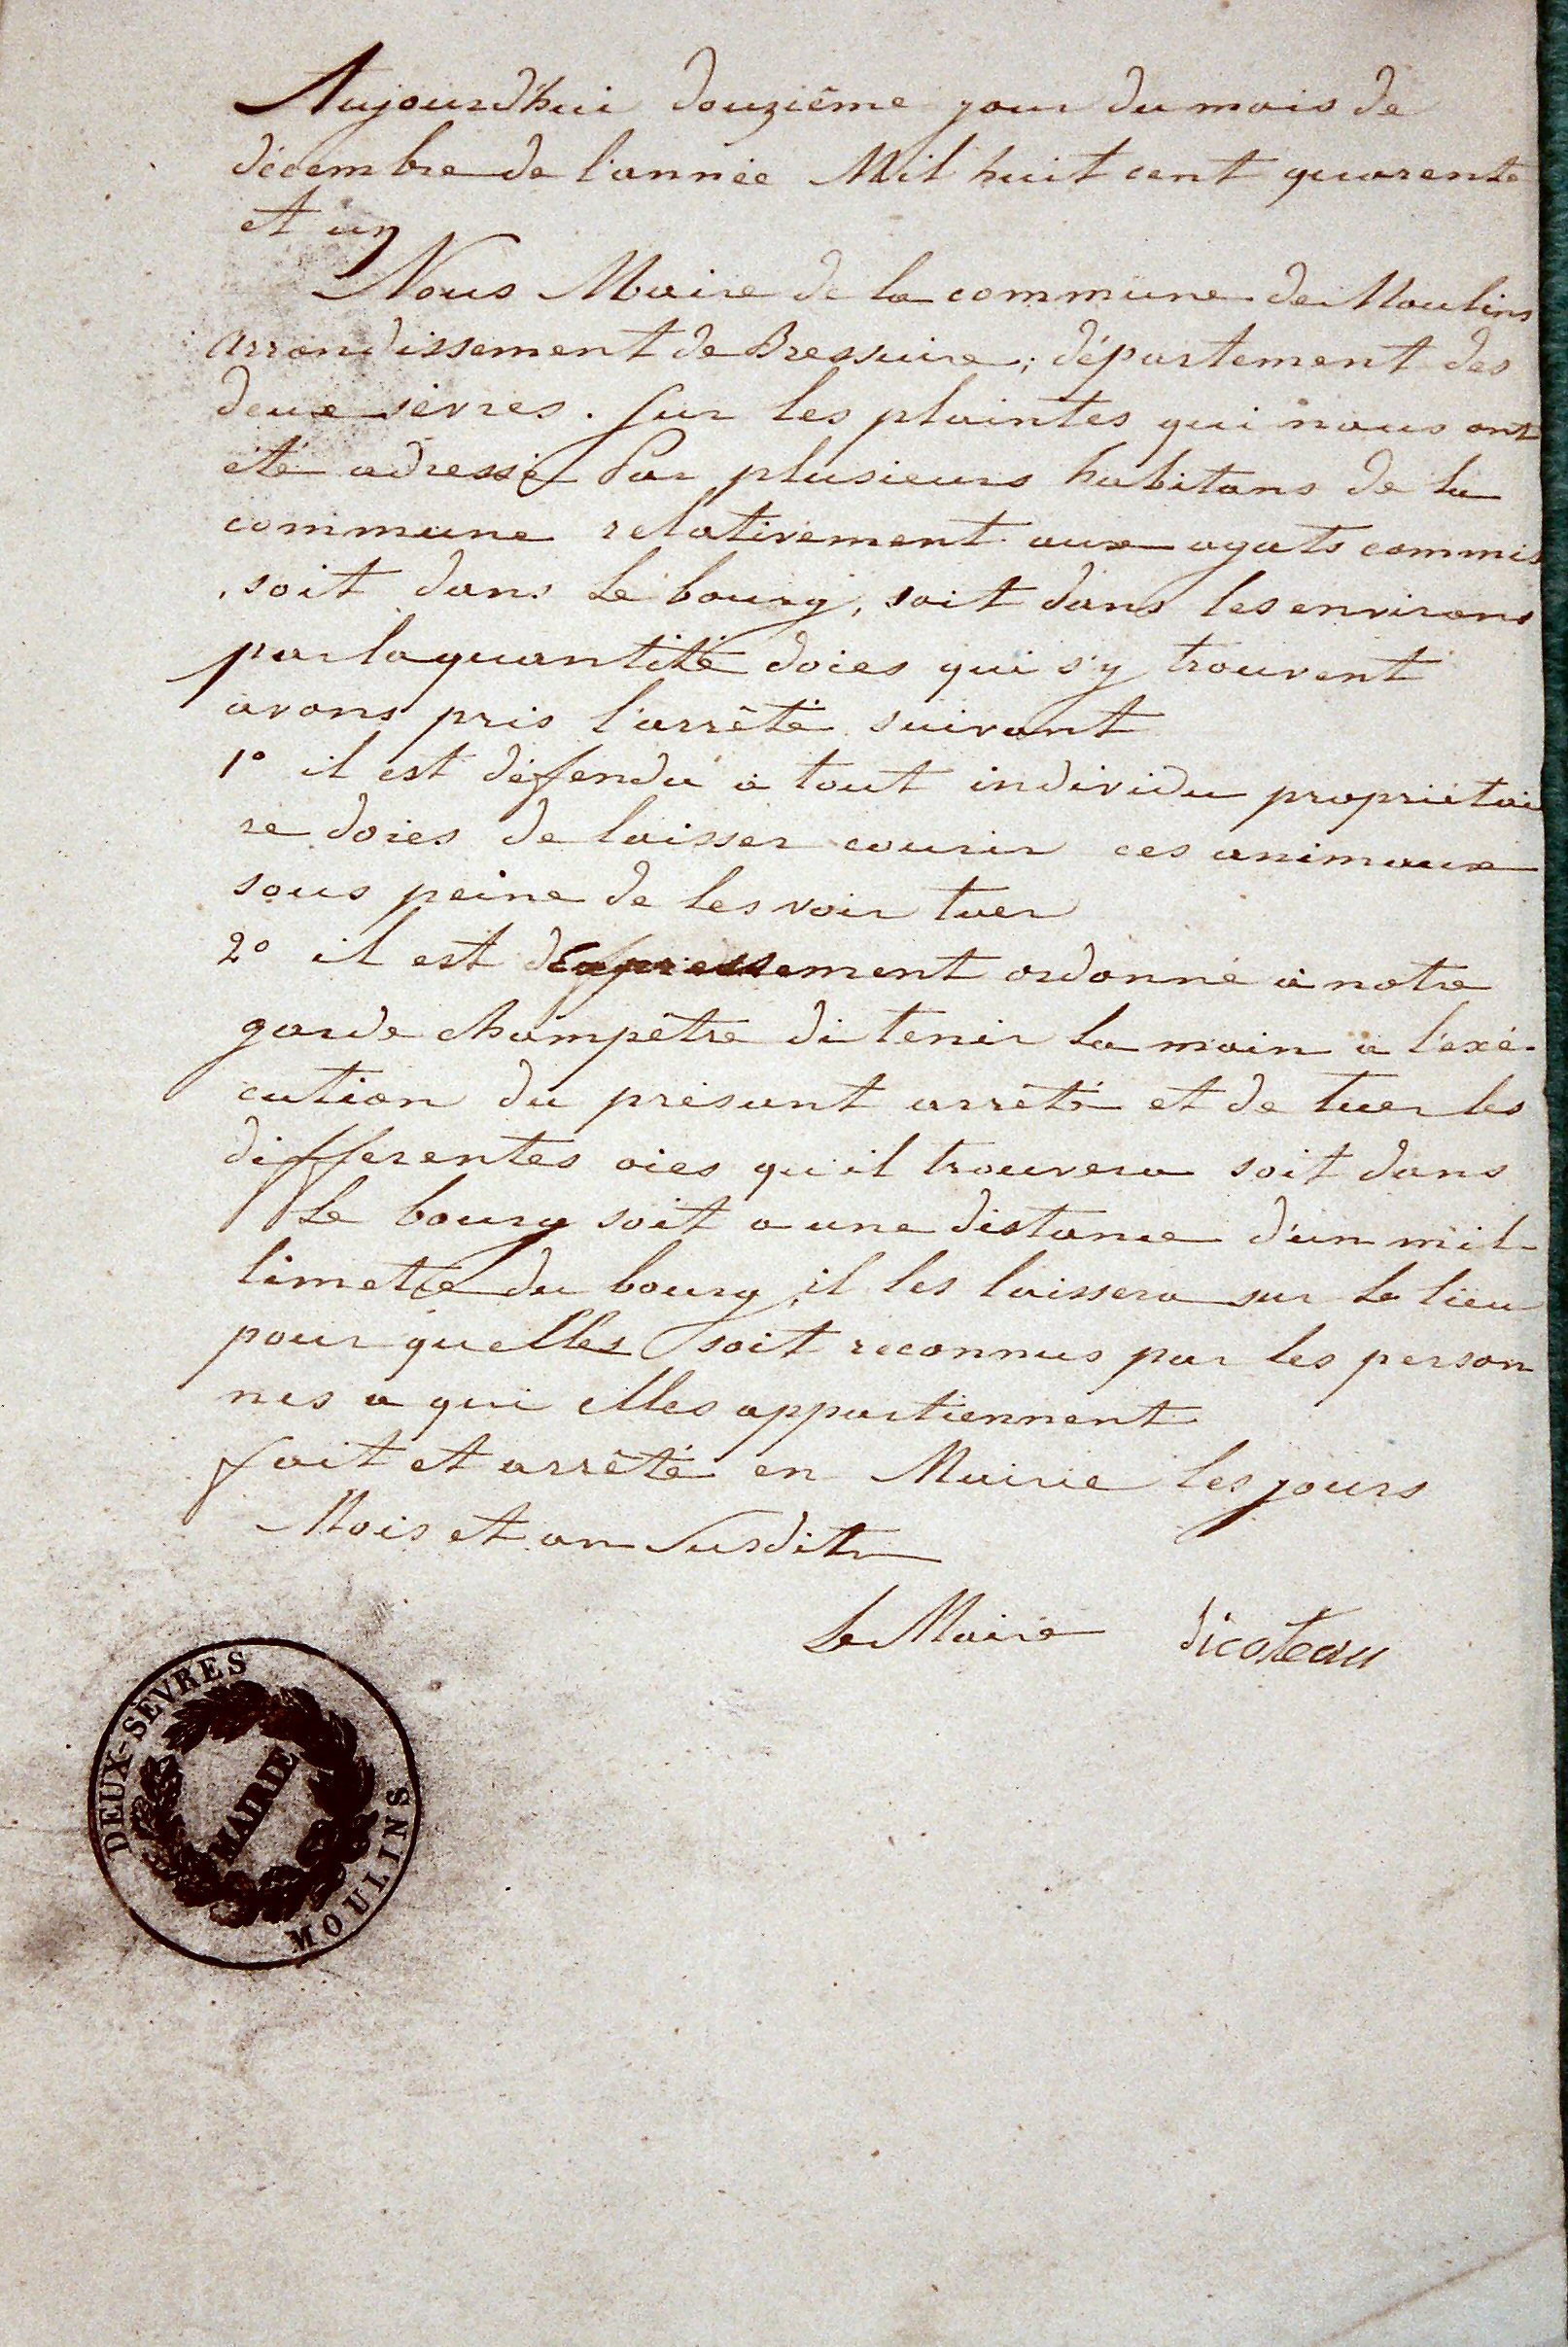 Aujourd'hui douzième jour du mois de
décembre de l'année Mil huit cent quarente
et un
Nous Maire de la commune de Moulins
arrondissement de Bressuire, département des
deux sèvres. Sur les plaintes qui nous ont
été adressé Par plusieurs habitans de la
commune relativement aux agats commis
soit dans le bourg, soit dans les environs
par la quantité doies qui s'y trouvent
avons pris l'arrêté suivant
1° il est déffendu à tout individu propriétai
re doies de laisser courir ces animaux
sous peine de les voir tuer
2° il est expressement ordonné à notre
garde champêtre di tenir la main a l'exé-
cution du présant arrêté et de tuer les
differentes oies qu'il trouvera soit dans
le bourg soit a une distance d'un mil-
limetre du bourg, il les laissera sur le lieu
pour quelles soit reconnus par les person
nes a qui elles appartiennent
fait et arrêté en Mairie les jours
Mois et an Susdits
Le Maire
DEUX-SÈVRES
MAIRIE
MOULINS